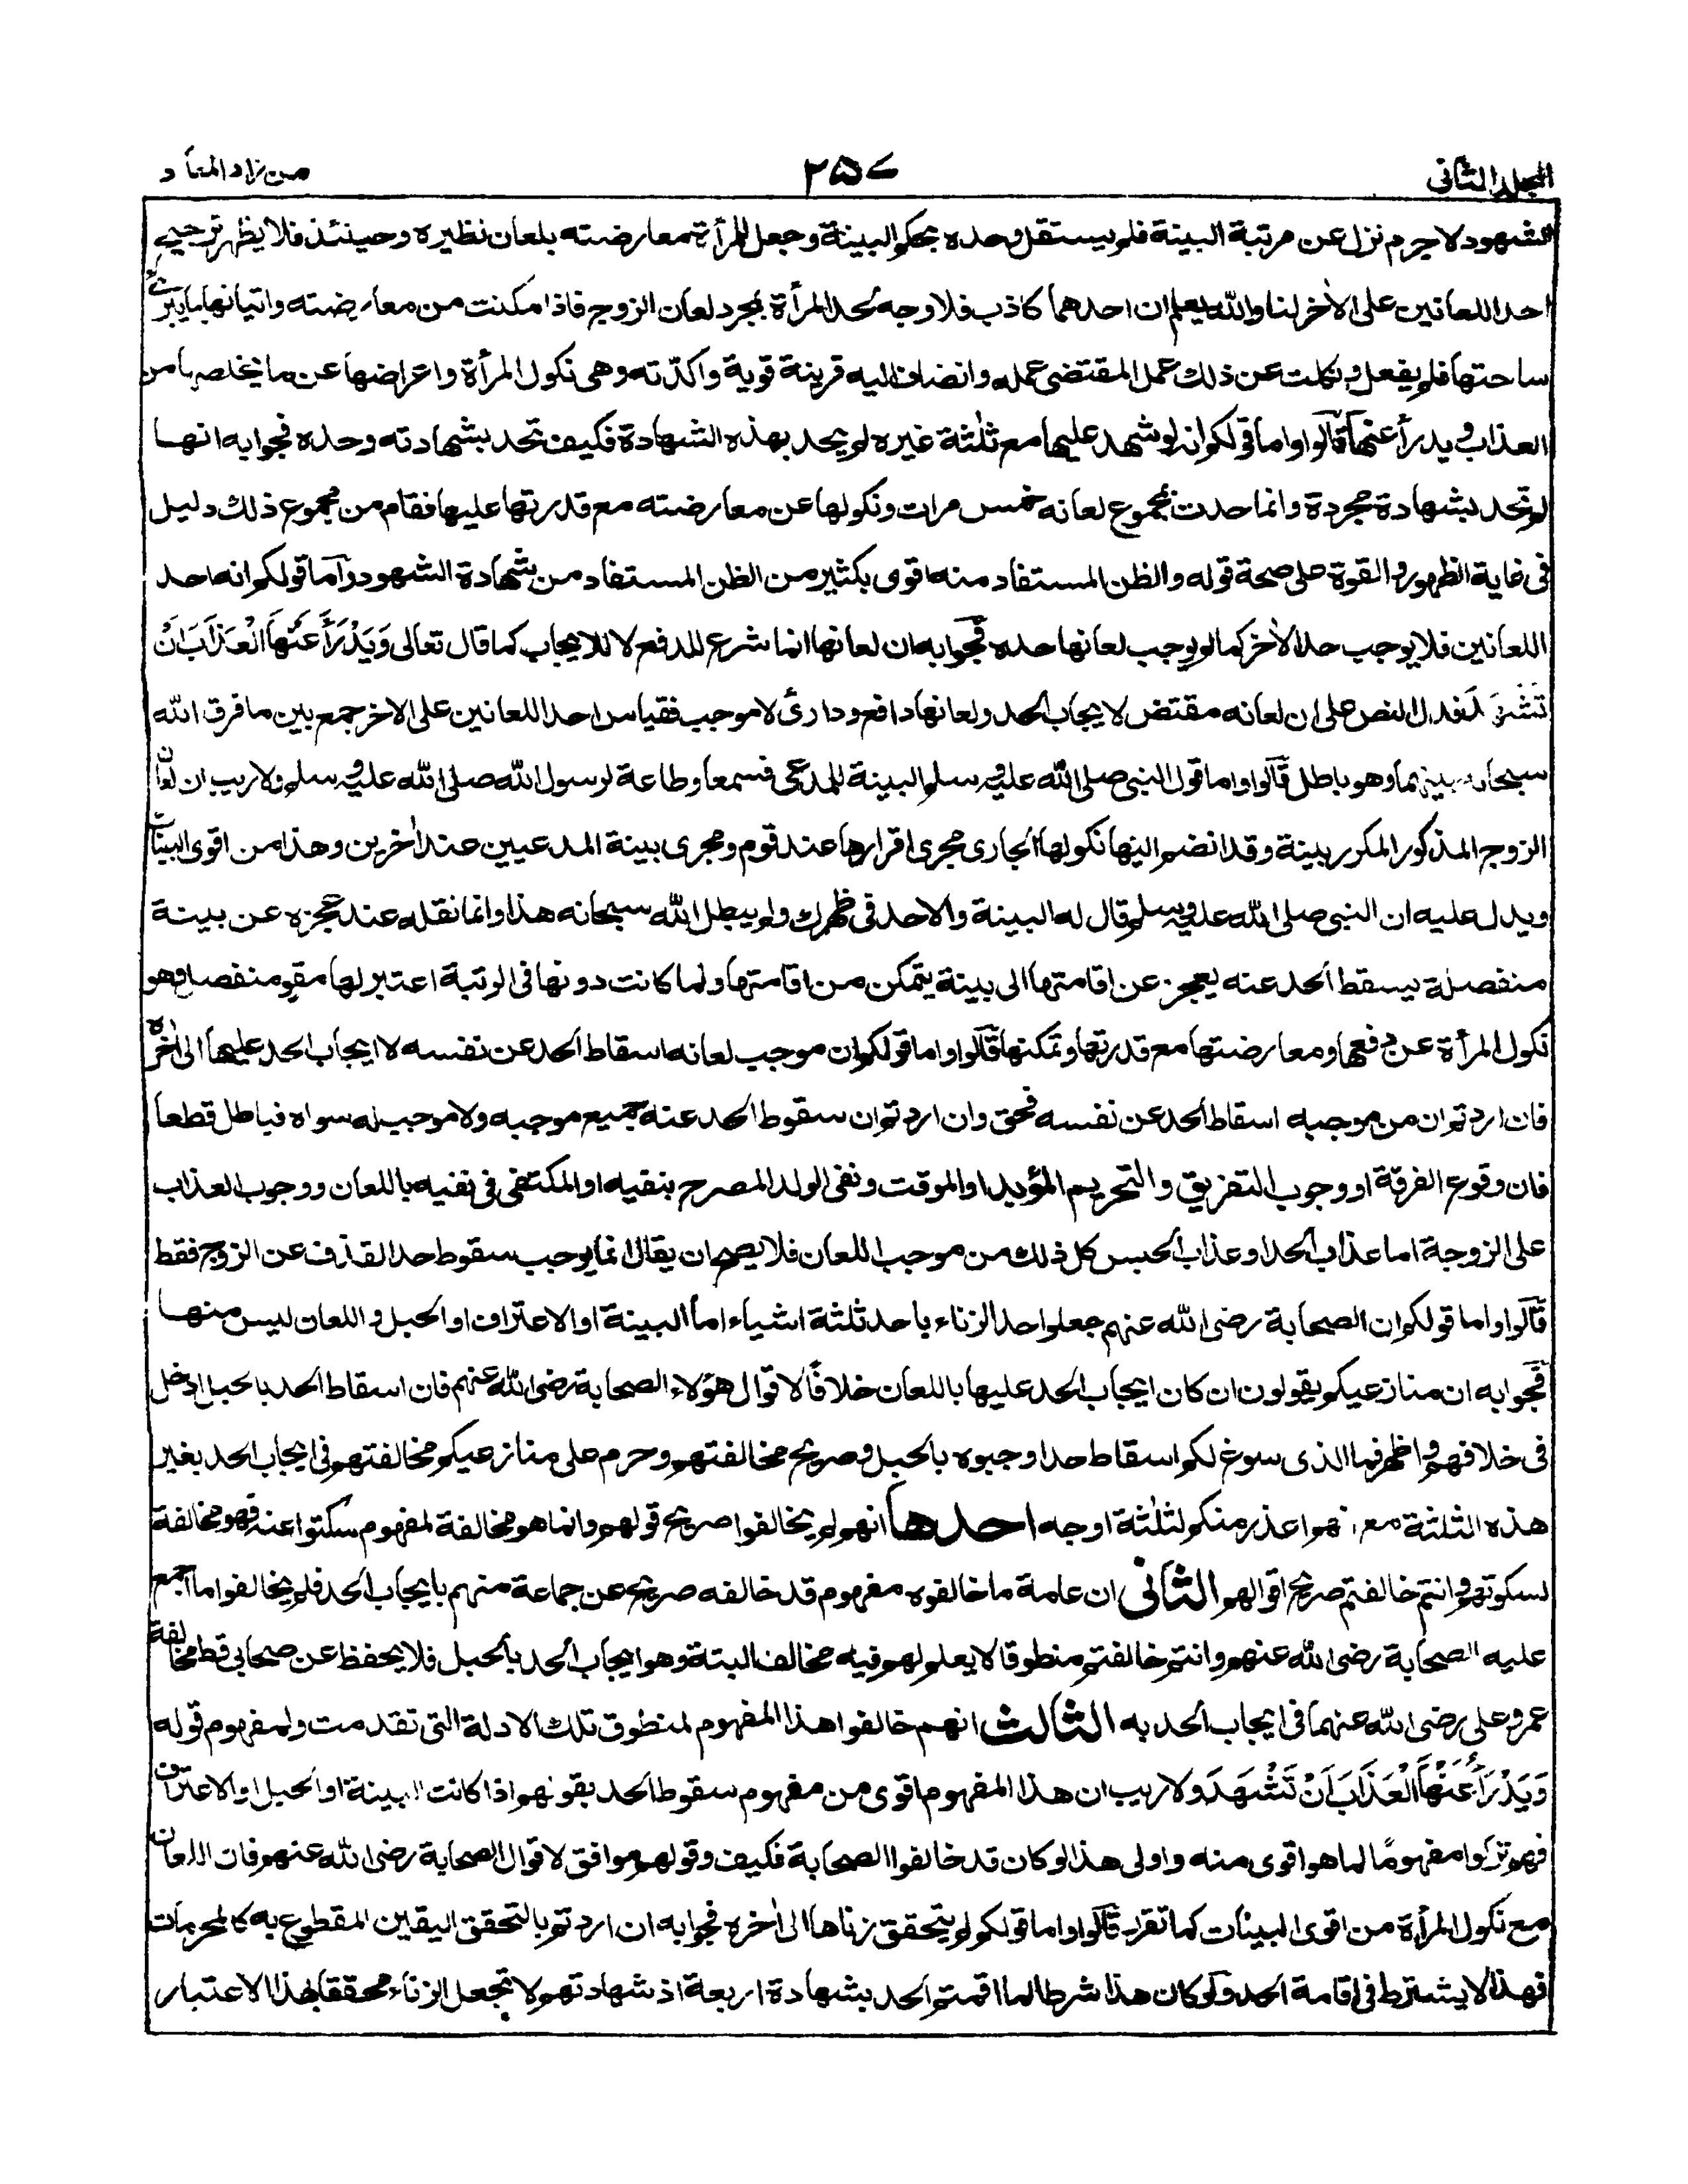 المجلد الثاني
٢٥٧
من زاد المعاد
الشهود لا جرم نزل عن مرتبة البينة فلم يستقل وحده بحكم البينة وجعل للمرأة معارضته بلعان نظيره وحينئذ فلا يظهر ترجيح
احد اللعانين على الاٰخر لنا والله يعلم ان احدهما كاذب فلا وجه لحد المرأة بمجرد لعان الزوج فاذا مكنت من معارضته واتيانها بما يبرئ
ساحتها فلم يفعل ونكلت عن ذلك عمل المقتضى عمله وانضاف اليه قرينة قوية واكدته وهى نكول المرأة واعراضها عن ما يخلصها من
العذاب ويدرأ عنها قالوا واما قولكم انه لو شهد عليها مع ثلٰثة غيره لم يحد بهذه الشهادة فكيف تحد بشهادته وحده فجوابه انها
لم تحد بشهادة مجردة وانما حدت بمجموع لعانه خمس مرات ونكولها عن معارضته مع قدرتها عليها فقام من مجموع ذلك دليل
فى غاية الظهور والقوة على صحة قوله والظن المستفاد منه اقوى بكثير من الظن المستفاد من شهادة الشهود واما قولكم انه احد
اللعانين فلا يوجب حد الاٰخر كما لم يوجب لعانها حده فجوابه ان لعانها انما شرع للدفع لا للايجاب كما قال تعالى وَيَدْرَأُ عَنْهَا الْعَذَابَ اَنْ
تَشْهَدَ فدل النص على ان لعانه مقتض لايجاب الحد ولعانها دافع ودارئ لا موجب فقياس احد اللعانين على الاخر جمع بين ما فرق الله
سبحانه بينهما وهو باطل قالوا واما قول النبى صلى الله عليه وسلم البينة للمدعى فسمعا وطاعة لرسول الله صلى الله عليه وسلم ولا ريب ان لعان
الزوج المذكور المكرر بينة وقد انضم اليها نكولها الجارى مجرى اقرارها عند قوم ومجرى بينة المدعيين عند اٰخرين وهذا من اقوى البينات
ويدل عليه ان النبى صلى الله عليه وسلم قال له البينة والا حد فى ظهرك ولم يبطل الله سبحانه هذا وانما نقله عند عجزه عن بينة
منفصلة يسقط الحد عنه يعجز عن اقامتها الى بينة يتمكن من اقامتها ولما كانت دونها فى الرتبة اعتبر لها مقو منفصل وهو
نكول المرأة عن دفعها ومعارضتها مع قدرتها وتمكنها قالوا واما قولكم ان موجب لعانه اسقاط الحد عن نفسه لا ايجاب الحد عليها الى اٰخره
فان اردتم ان من موجبه اسقاط الحد عن نفسه فحق وان اردتم ان سقوط الحد عنه جميع موجبه ولا موجب له سواه فباطل قطعا
فان وقوع الفرقة او وجوب التفريق والتحريم المؤبد او الموقت ونفى الولد المصرح بنفيه او المكتفى فى نفيه باللعان ووجوب العذاب
على الزوجة اما عذاب الحد او عذاب الحبس كل ذلك من موجب اللعان فلا يصح ان يقال انما يوجب سقوط حد القذف عن الزوج فقط
قالوا واما قولكم ان الصحابة رضى الله عنهم جعلوا حد الزناء باحد ثلٰثة اشياء اما البينة او الاعتراف او الحبل واللعان ليس منها
فجوابه ان منازعيكم يقولون ان كان ايجاب الحد عليها باللعان خلافًا لاقوال هؤلاء الصحابة رضى الله عنهم فان اسقاط الحد بالحبل ادخل
فى خلافهم واظهر فما الذى سوغ لكم اسقاط حد اوجبوه بالحبل وصريح مخالفتهم وحرم على منازعيكم مخالفتهم فى ايجاب الحد بغير
هذه الثلٰثة مع انهم اعذر منكم لثلٰثة اوجه احدها انهم لم يخالفوا صريح قولهم وانما هو مخالفة لمفهوم سكتوا عنه فهو مخالفة
لسكوتهم وانتم خالفتم صريح اقوالهم الثانى ان عامة ما خالفوه مفهوم قد خالفه صريح عن جماعة منهم بايجاب الحد فلم يخالفوا ما اجمع
عليه الصحابة رضى الله عنهم وانتم خالفتم منطوقا لا يعلم لهم فيه مخالف البتة وهو ايجاب الحد بالحبل فلا يحفظ عن صحابى قط مخالفة
عمر وعلى رضى الله عنهما فى ايجاب الحد به الثالث انهم خالفوا هذا المفهوم لمنطوق تلك الادلة التى تقدمت ولمفهوم قوله
وَيَدْرَأُ عَنْهَا الْعَذَابَ اَنْ تَشْهَدَ ولا ريب ان هذا المفهوم اقوى من مفهوم سقوط الحد بقولهم اذا كانت البينة او الحبل او الاعتراف
فهم تركوا مفهومًا لما هو اقوى منه واولى هذا لو كان قد خالفوا الصحابة فكيف وقولهم موافق لاقوال الصحابة رضى الله عنهم فان اللعان
مع نكول المرأة من اقوى البينات كما تقرر قالوا واما قولكم لم يتحقق زناها الى اٰخره فجوابه ان اردتم بالتحقق اليقين المقطوع به كالمحرمات
فهذا لا يشترط فى اقامة الحد ولو كان هذا شرطا لما اقمتم الحد بشهادة اربعة اذ شهادتهم لا تجعل الزناء محققا بهذا الاعتبار